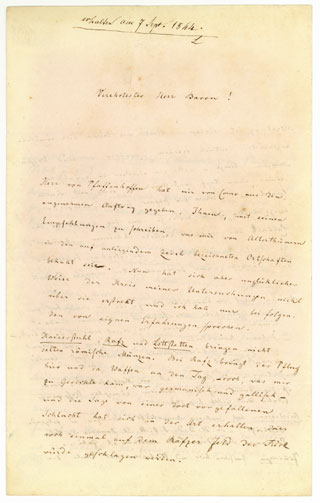 erhalten am 7 Sept. 1844.
Verehrtester Herr Baron!
Herr von Pfaffenhoffen hat mir von Como aus den
angenehmen Auftrag gegeben, Ihnen, mit seinen
Empfehlungen zu schreiben was mir von Alterthümern
in den auf beiliegendem Zettel bezeichneten Ortschaften
bekannt sei. Nun hat sich aber unglücklicher
Weise der Kreis meiner Untersuchungen nicht
über sie erstreckt und ich kann nur bei folgen
den von eignen Erfahrungen sprechen.
Kaiserstuhl, Rafz und Lottstetten bringen nicht
selten römische Münzen. Bei Rafz bringt der Pflug
hie und da Waffen an den Tag, doch was mir
zu Gesichte kam war germanisch und gallisch
und die Sage von einer dort vorgefallenen
Schlacht hat sich in der Art erhalten, dass
noch einmal auf dem Rafzer Feld der Türk
würde geschlagen werden.